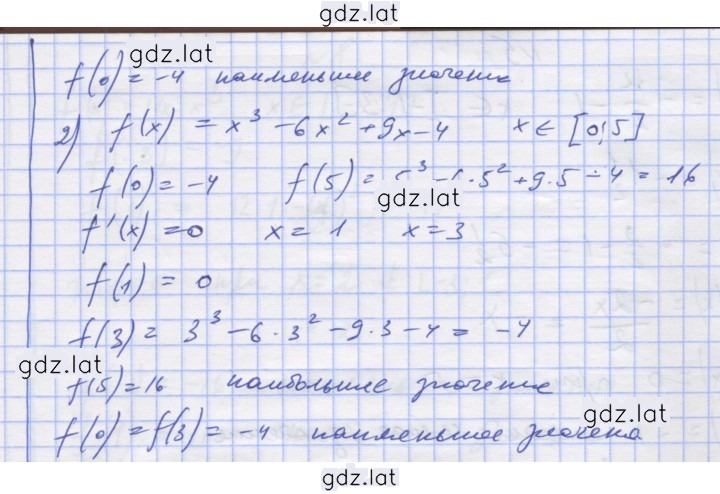 gdz.lat
gdz.lat
f(0) = -4 наименьшее значение
2) f(x) = x³ - 6x² + 9x - 4 x ∈ [0;5]
f(0) = -4 f(5) = 5³ - 6·5² + 9·5 - 4 = 16
gdz.lat
f'(x) = 0 x = 1 x = 3
f(1) = 0
f(3) = 3³ - 6·3² - 9·3 - 4 = -4
gdz.lat
f(5) = 16 наибольшее значение
gdz.lat
f(0) = f(3) = -4 наименьшое значена
gdz.lat